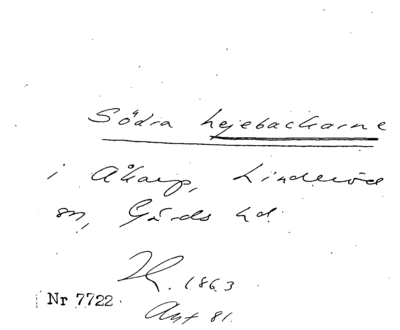 Södra Lejebackarne
i Åkarp, Linderöd
sn, Gärds hd.
H. 1863
Nr 7722
Akt 81.